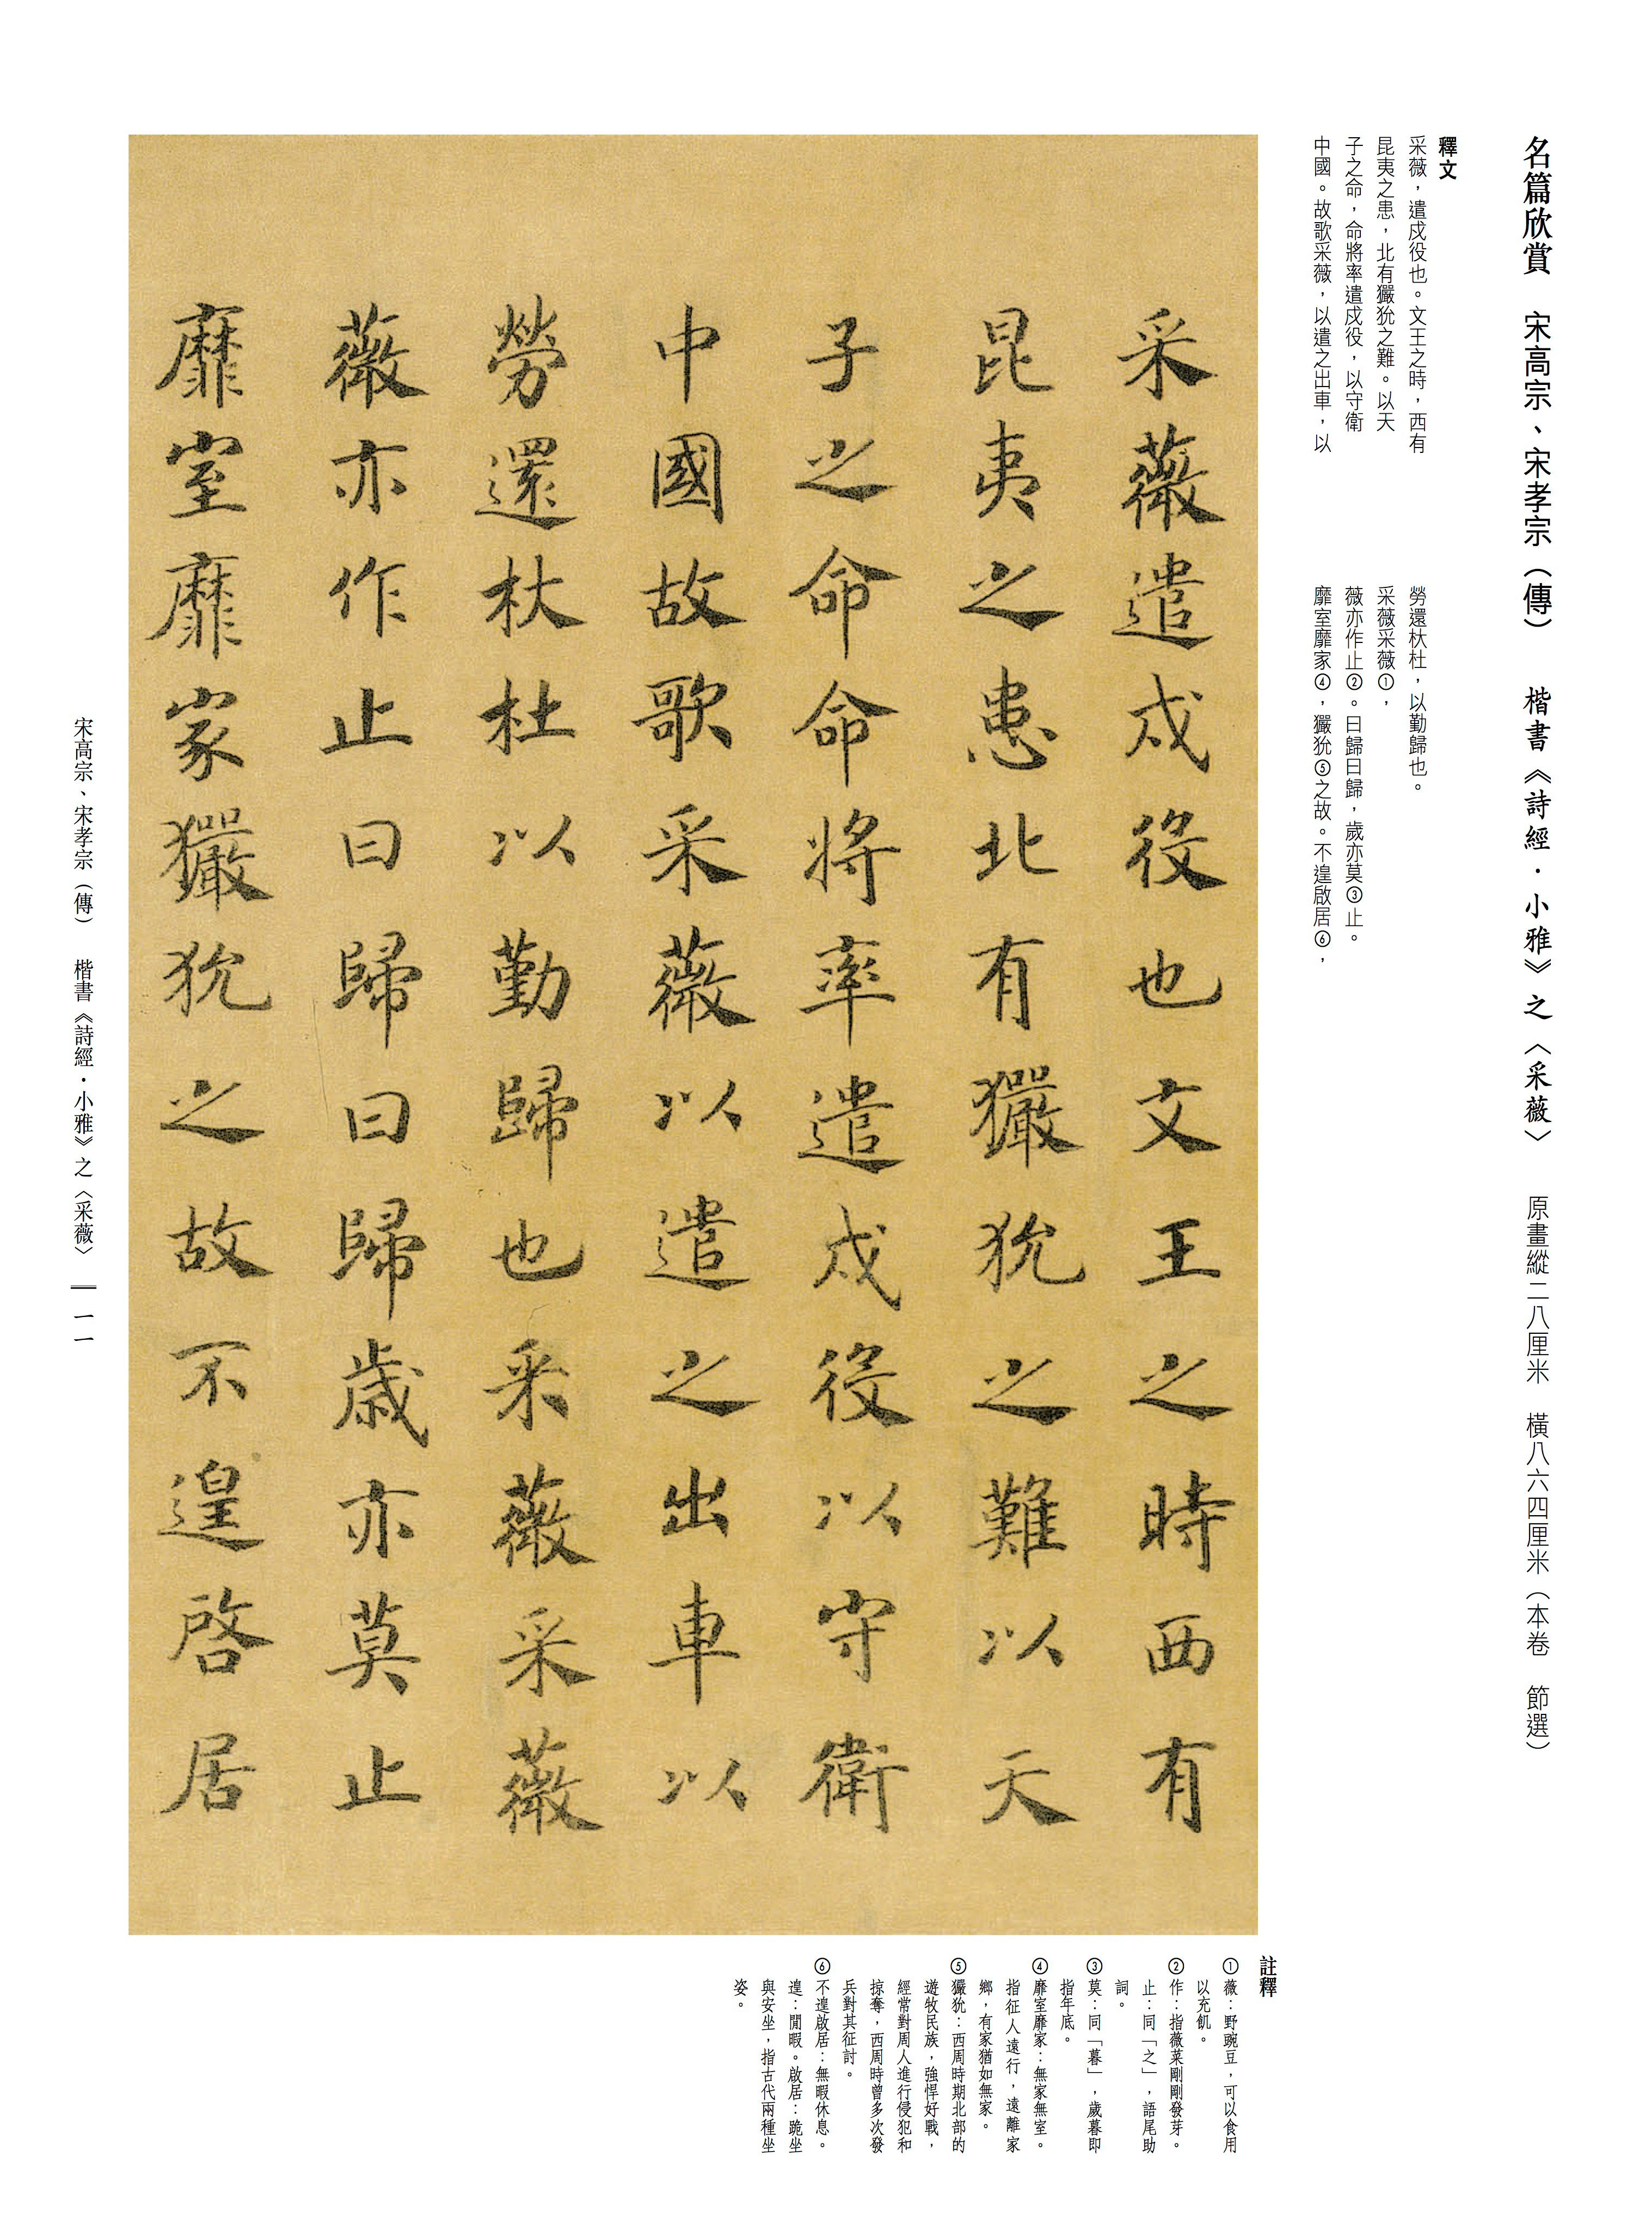 名篇欣賞　宋高宗、宋孝宗（傳）　楷書《詩經·小雅》之〈采薇〉　原畫縱二八厘米　橫八六四厘米（本卷　節選）
釋文
采薇，遣戍役也。文王之時，西有
昆夷之患，北有玁狁之難。以天
子之命，命將率遣戍役，以守衛
中國。故歌采薇，以遣之出車，以
勞還杕杜，以勤歸也。
采薇采薇①，
薇亦作止②。曰歸曰歸，歲亦莫③止。
靡室靡家④，玁狁⑤之故。不遑啟居⑥，
采薇遣戍役也文王之時西有
昆夷之患北有玁狁之難以天
子之命命將率遣戍役以守衛
中國故歌采薇以遣之出車以
勞還杕杜以勤歸也采薇采薇
薇亦作止曰歸曰歸歲亦莫止
靡室靡家玁狁之故不遑啓居
註釋
①薇：野豌豆，可以食用
以充飢。
②作：指薇菜剛剛發芽。
止：同「之」，語尾助
詞。
③莫：同「暮」，歲暮即
指年底。
④靡室靡家：無家無室。
指征人遠行，遠離家
鄉，有家猶如無家。
⑤玁狁：西周時期北部的
遊牧民族，強悍好戰，
經常對周人進行侵犯和
掠奪，西周時曾多次發
兵對其征討。
⑥不遑啟居：無暇休息。
遑：閒暇。啟居：跪坐
與安坐，指古代兩種坐
姿。
宋高宗、宋孝宗（傳）　楷書《詩經·小雅》之〈采薇〉　一一